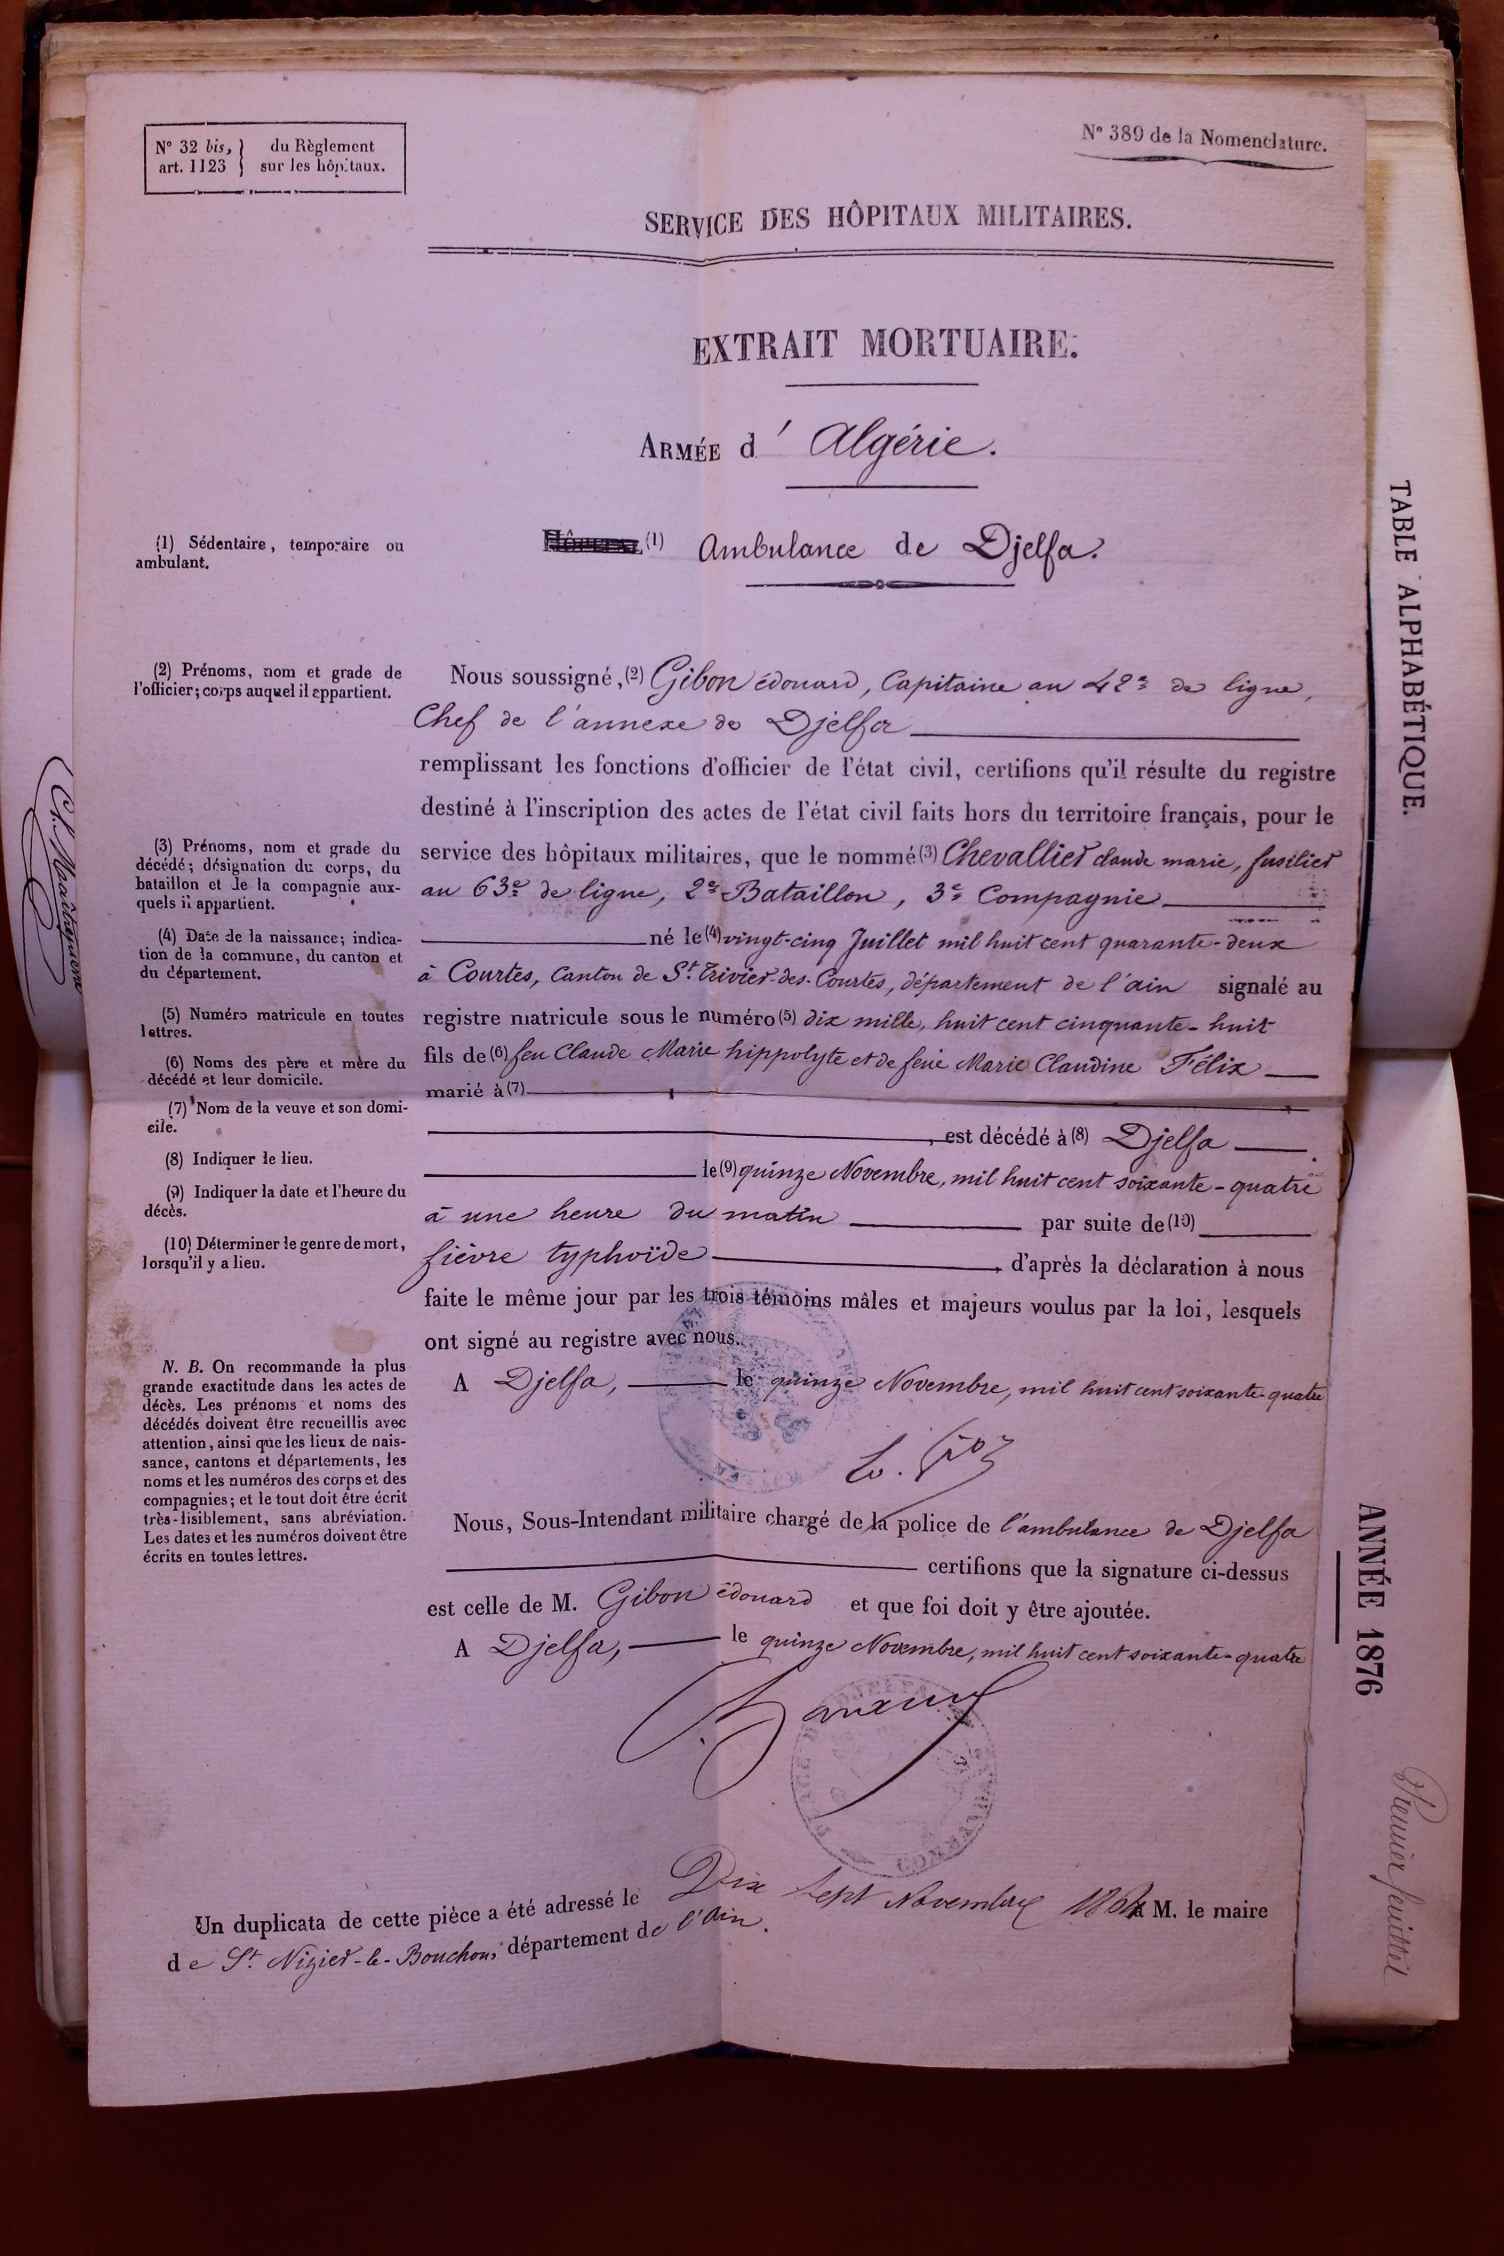 N° 32 bis, } du Règlement
art. 1123 } sur les hôpitaux.
N° 389 de la Nomenclature.
SERVICE DES HÔPITAUX MILITAIRES.
EXTRAIT MORTUAIRE.
ARMÉE d'Algérie.
(1) Sédentaire, temporaire ou
ambulant.
HÔPITAL (1) Ambulance de Djelfa.
(2) Prénoms, nom et grade de
l'officier; corps auquel il appartient.
Nous soussigné, (2) Gibon édouard, Capitaine au 42e de ligne,
Chef de l'annexe de Djelfa
remplissant les fonctions d'officier de l'état civil, certifions qu'il résulte du registre
destiné à l'inscription des actes de l'état civil faits hors du territoire français, pour le
service des hôpitaux militaires, que le nommé (3) Chevallier claude marie, fusilier
au 63e de ligne, 2e Bataillon, 3e Compagnie
(3) Prénoms, nom et grade du
décédé; désignation du corps, du
bataillon et de la compagnie aux-
quels il appartient.
(4) Date de la naissance; indica-
tion de la commune, du canton et
du département.
né le (4) vingt-cinq Juillet mil huit cent quarante-deux
à Courtes, Canton de St. Trivier-des-Courtes, département de l'ain signalé au
(5) Numéro matricule en toutes
lettres.
registre matricule sous le numéro (5) dix mille, huit cent cinquante-huit
(6) Noms des père et mère du
décédé et leur domicile.
fils de (6) feu Claude Marie hippolyte et de feue Marie Claudine Félix
marié à (7)
(7) Nom de la veuve et son domi-
cile.
, est décédé à (8) Djelfa
(8) Indiquer le lieu.
le (9) quinze Novembre, mil huit cent soixante-quatre
(9) Indiquer la date et l'heure du
décès.
à une heure du matin par suite de (10)
(10) Déterminer le genre de mort,
lorsqu'il y a lieu.
fièvre typhoïde d'après la déclaration à nous
faite le même jour par les trois témoins mâles et majeurs voulus par la loi, lesquels
ont signé au registre avec nous.
A Djelfa, le quinze Novembre, mil huit cent soixante-quatre
N. B. On recommande la plus
grande exactitude dans les actes de
décès. Les prénoms et noms des
décédés doivent être recueillis avec
attention, ainsi que les lieux de nais-
sance, cantons et départements, les
noms et les numéros des corps et des
compagnies; et le tout doit être écrit
très-lisiblement, sans abréviation.
Les dates et les numéros doivent être
écrits en toutes lettres.
Nous, Sous-Intendant militaire chargé de la police de l'ambulance de Djelfa
certifions que la signature ci-dessus
est celle de M. Gibon édouard et que foi doit y être ajoutée.
A Djelfa, le quinze Novembre, mil huit cent soixante-quatre
Un duplicata de cette pièce a été adressé le Dix Sept Novembre 1864 à M. le maire
de St. Nizier-le-Bouchoux, département de l'Ain.
TABLE ALPHABÉTIQUE.
ANNÉE 1876
Premier feuillet